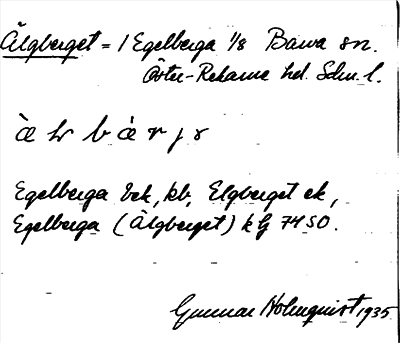 Älgberget = 1 Egelberga 1/8 Bärva sn.
Öster-Rekarne hd. Södm. l.
Egelberga bek, kb, Elgberget ek,
Egelberga (Älgberget) k G 74 SO.
Gunnar Holmquist 1935